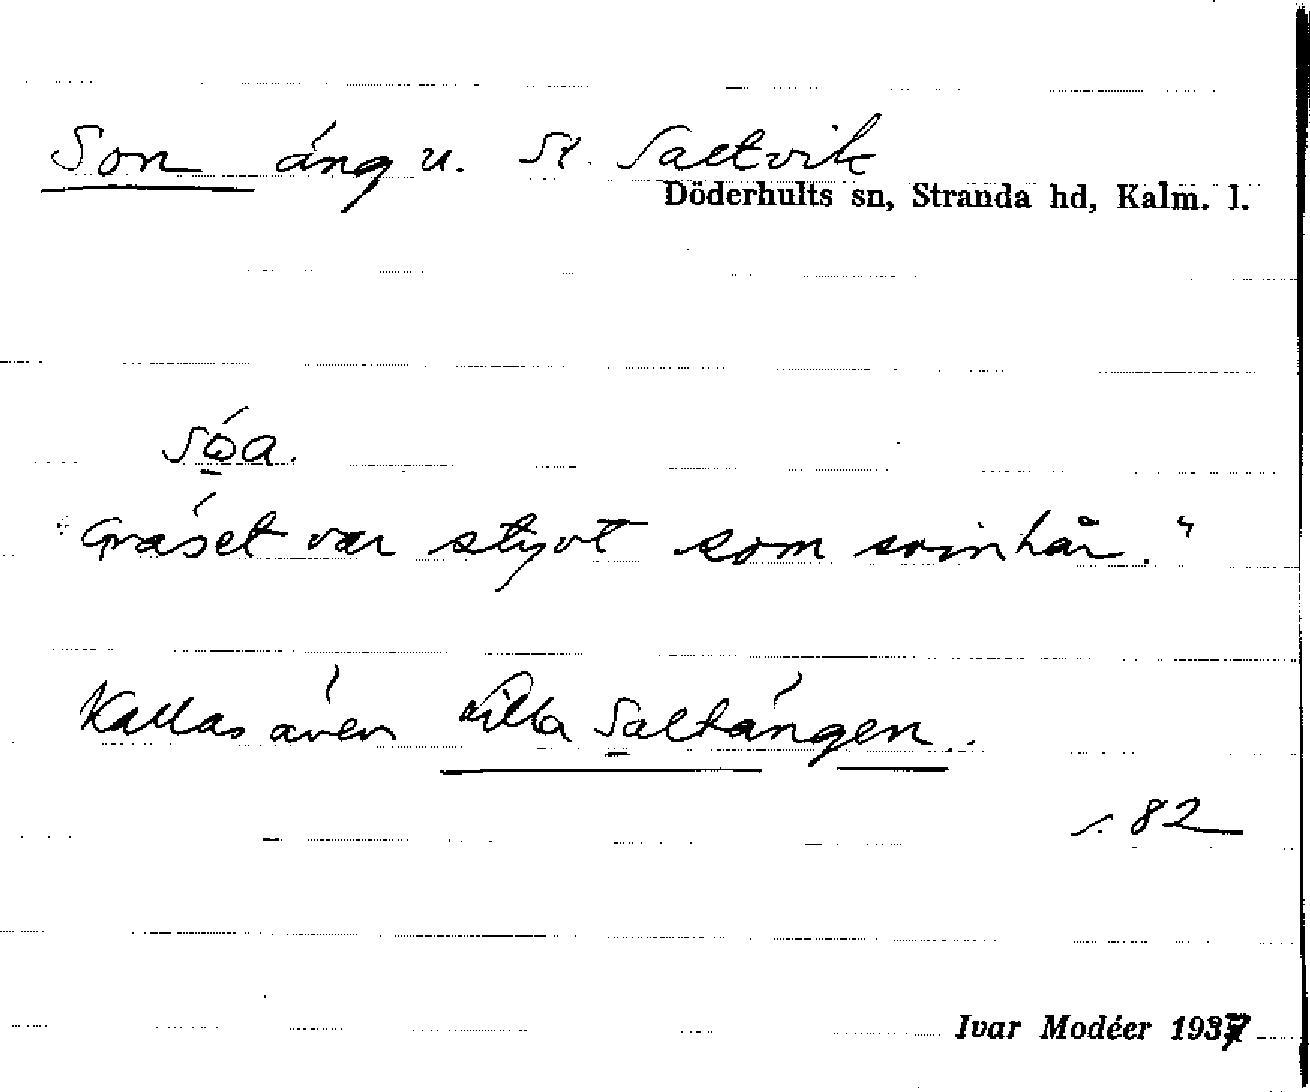 Son äng u. St. Saltvik
Döderhults sn, Stranda hd, Kalm. l.
sóa.
"Gräset var styvt som svinhår."
Kallas även Lilla Saltängen.
s. 82
Ivar Modéer 1937